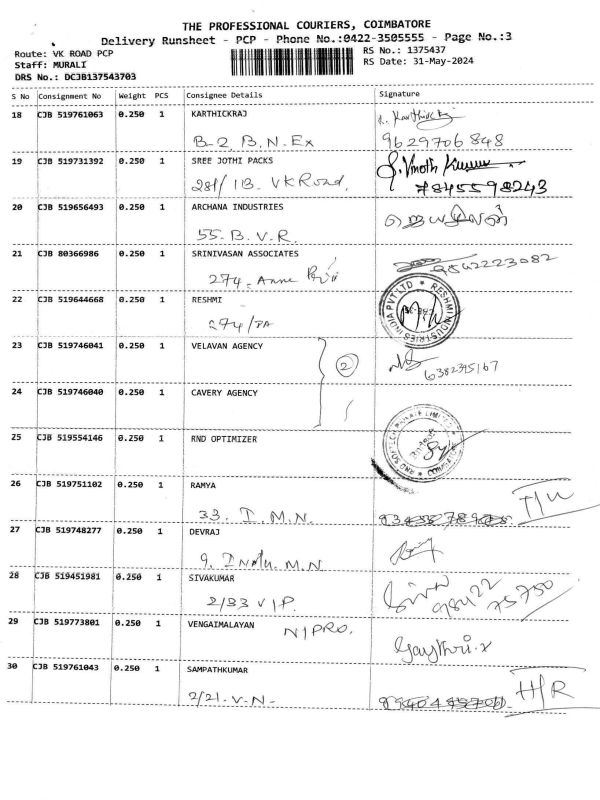 THE PROFESSIONAL COURIERS, COIMBATORE
Delivery Runsheet - PCP - Phone No.:0422-3505555 - Page No.:3
Route: VK ROAD PCP
RS No.: 1375437
Staff: MURALI
RS Date: 31-May-2024
DRS No.: DCJB137543703
S No Consignment No Weight PCS Consignee Details Signature
18 CJB 519761063 0.250 1 KARTHICKRAJ
B-2, B.N. Ex 9629706848
19 CJB 519731392 0.250 1 SREE JOTHI PACKS
281/1B. VK Road, 7845598243
20 CJB 519656493 0.250 1 ARCHANA INDUSTRIES
55. B. V. R.
21 CJB 80366986 0.250 1 SRINIVASAN ASSOCIATES 9542223082
274, Anne
22 CJB 519644668 0.250 1 RESHMI RESHMI INDUSTRIES INDIA PVT LTD
274/
23 CJB 519746041 0.250 1 VELAVAN AGENCY 2 6382395167
24 CJB 519746040 0.250 1 CAVERY AGENCY
25 CJB 519554146 0.250 1 RND OPTIMIZER
26 CJB 519751102 0.250 1 RAMYA
33. I. M.N.
27 CJB 519748277 0.250 1 DEVRAJ
9. Indu. M.N.
28 CJB 519451981 0.250 1 SIVAKUMAR
2/33 V I P. 98422 75750
29 CJB 519773801 0.250 1 VENGAIMALAYAN NIPRO.
Gaythri.
30 CJB 519761043 0.250 1 SAMPATHKUMAR H/R
2/21. V.N-